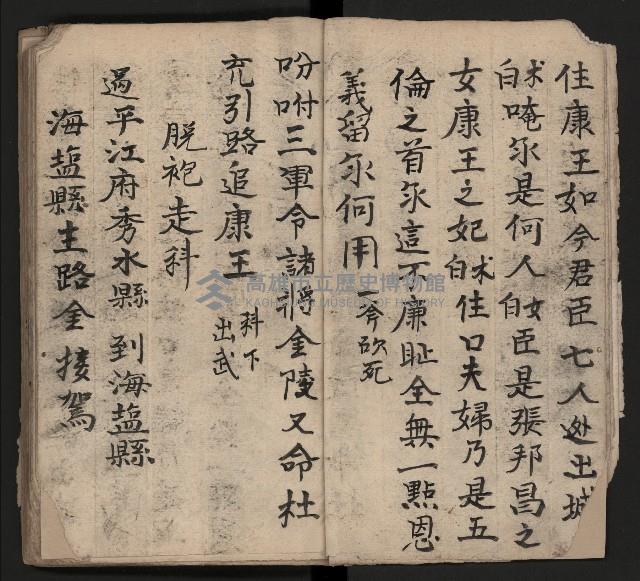 住康王如今君臣七人逃出城
朮白 唵尔是何人 女白 臣是張邦昌之
女康王之妃 朮白 住口夫婦乃是五
倫之首尔這不廉耻全無一點恩
義留尔何用 斧砍死
吩咐三軍令諸將金陵又命杜
充引路追康王 科下 出武
脱袍走科
過平江府秀水縣到海塩縣
海塩縣主路全接駕
高雄市立歷史博物館
KAOHSIUNG MUSEUM OF HISTORY